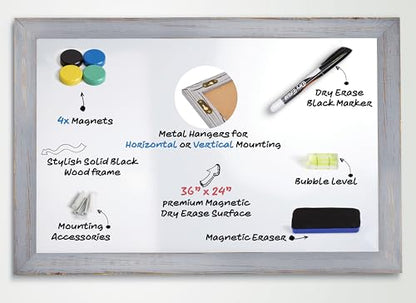 4x Magnets
Metal Hangers for
Horizontal or Vertical Mounting
Dry Erase
Black Marker
Stylish Solid Black
Wood frame
36" x 24"
premium Magnetic
Dry Erase Surface
Bubble level
Mounting
Accessories
Magnetic Eraser